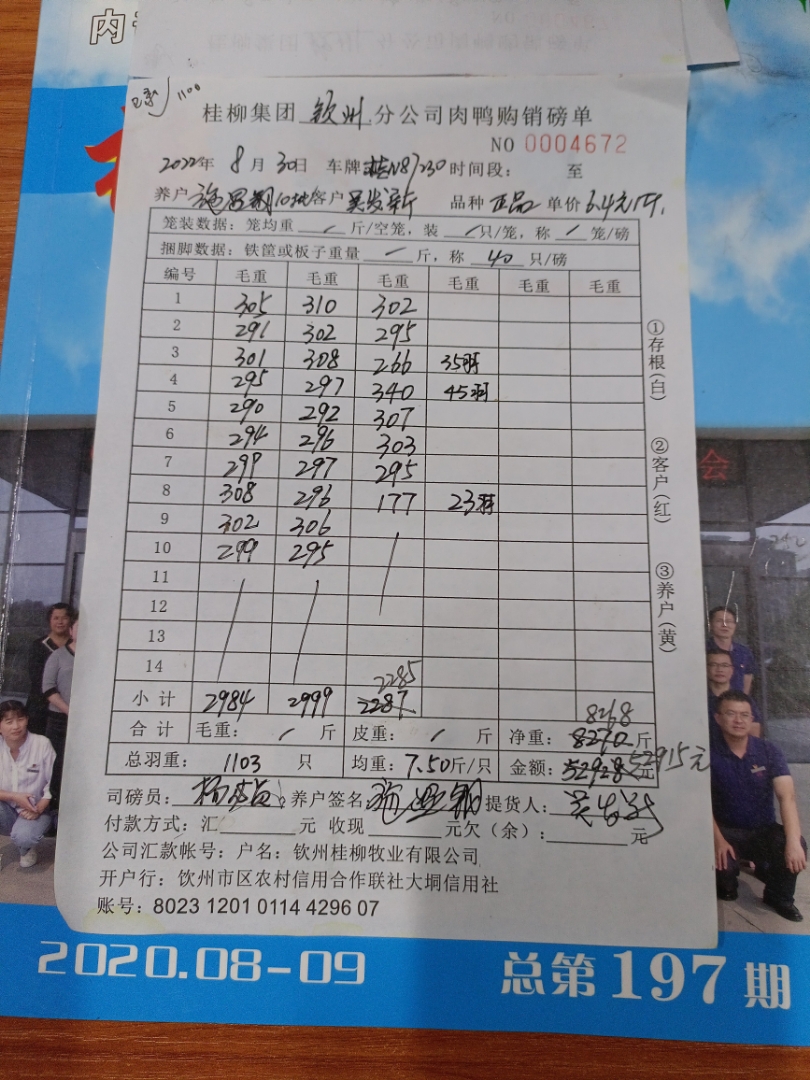 内
1100
桂柳集团 钦州 分公司肉鸭购销磅单
NO 0004672
2022年 8月30日 车牌 桂N87230 时间段： 至
养户 客户 品种 正品 单价 6.4元/斤
笼装数据：笼均重 / 斤/空笼，装 / 只/笼，称 / 笼/磅
捆脚数据：铁筐或板子重量 / 斤，称 40 只/磅
编号 毛重 毛重 毛重 毛重 毛重 毛重
1 305 310 302
2 291 302 295
3 301 308 266 35羽
4 295 297 340 45羽
5 290 292 307
6 294 296 303
7 299 297 295
8 308 296 177 23羽
9 302 306
10 299 295
11
12
13
14 2285
小计 2984 2999 2287 8268
合计 毛重： / 斤 皮重： / 斤 净重： 8270斤
总羽重： 1103 只 均重：7.50斤/只 金额：52928元 52915元
司磅员： 养户签名： 提货人：
付款方式：汇 元 收现 元欠（余）： 元
公司汇款帐号：户名：钦州桂柳牧业有限公司
开户行：钦州市区农村信用合作联社大垌信用社
账号：8023 1201 0114 4296 07
①存根（白）
②客户（红）
③养户（黄）
会
2020.08-09
总第197期